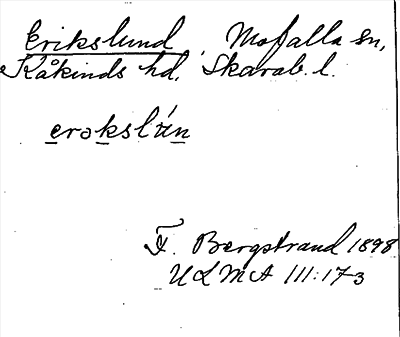 Erikslund, Mofalla sn,
Kåkinds hd, Skarab. l.
erəkslún
F. Bergstrand 1898
ULMA 111:173